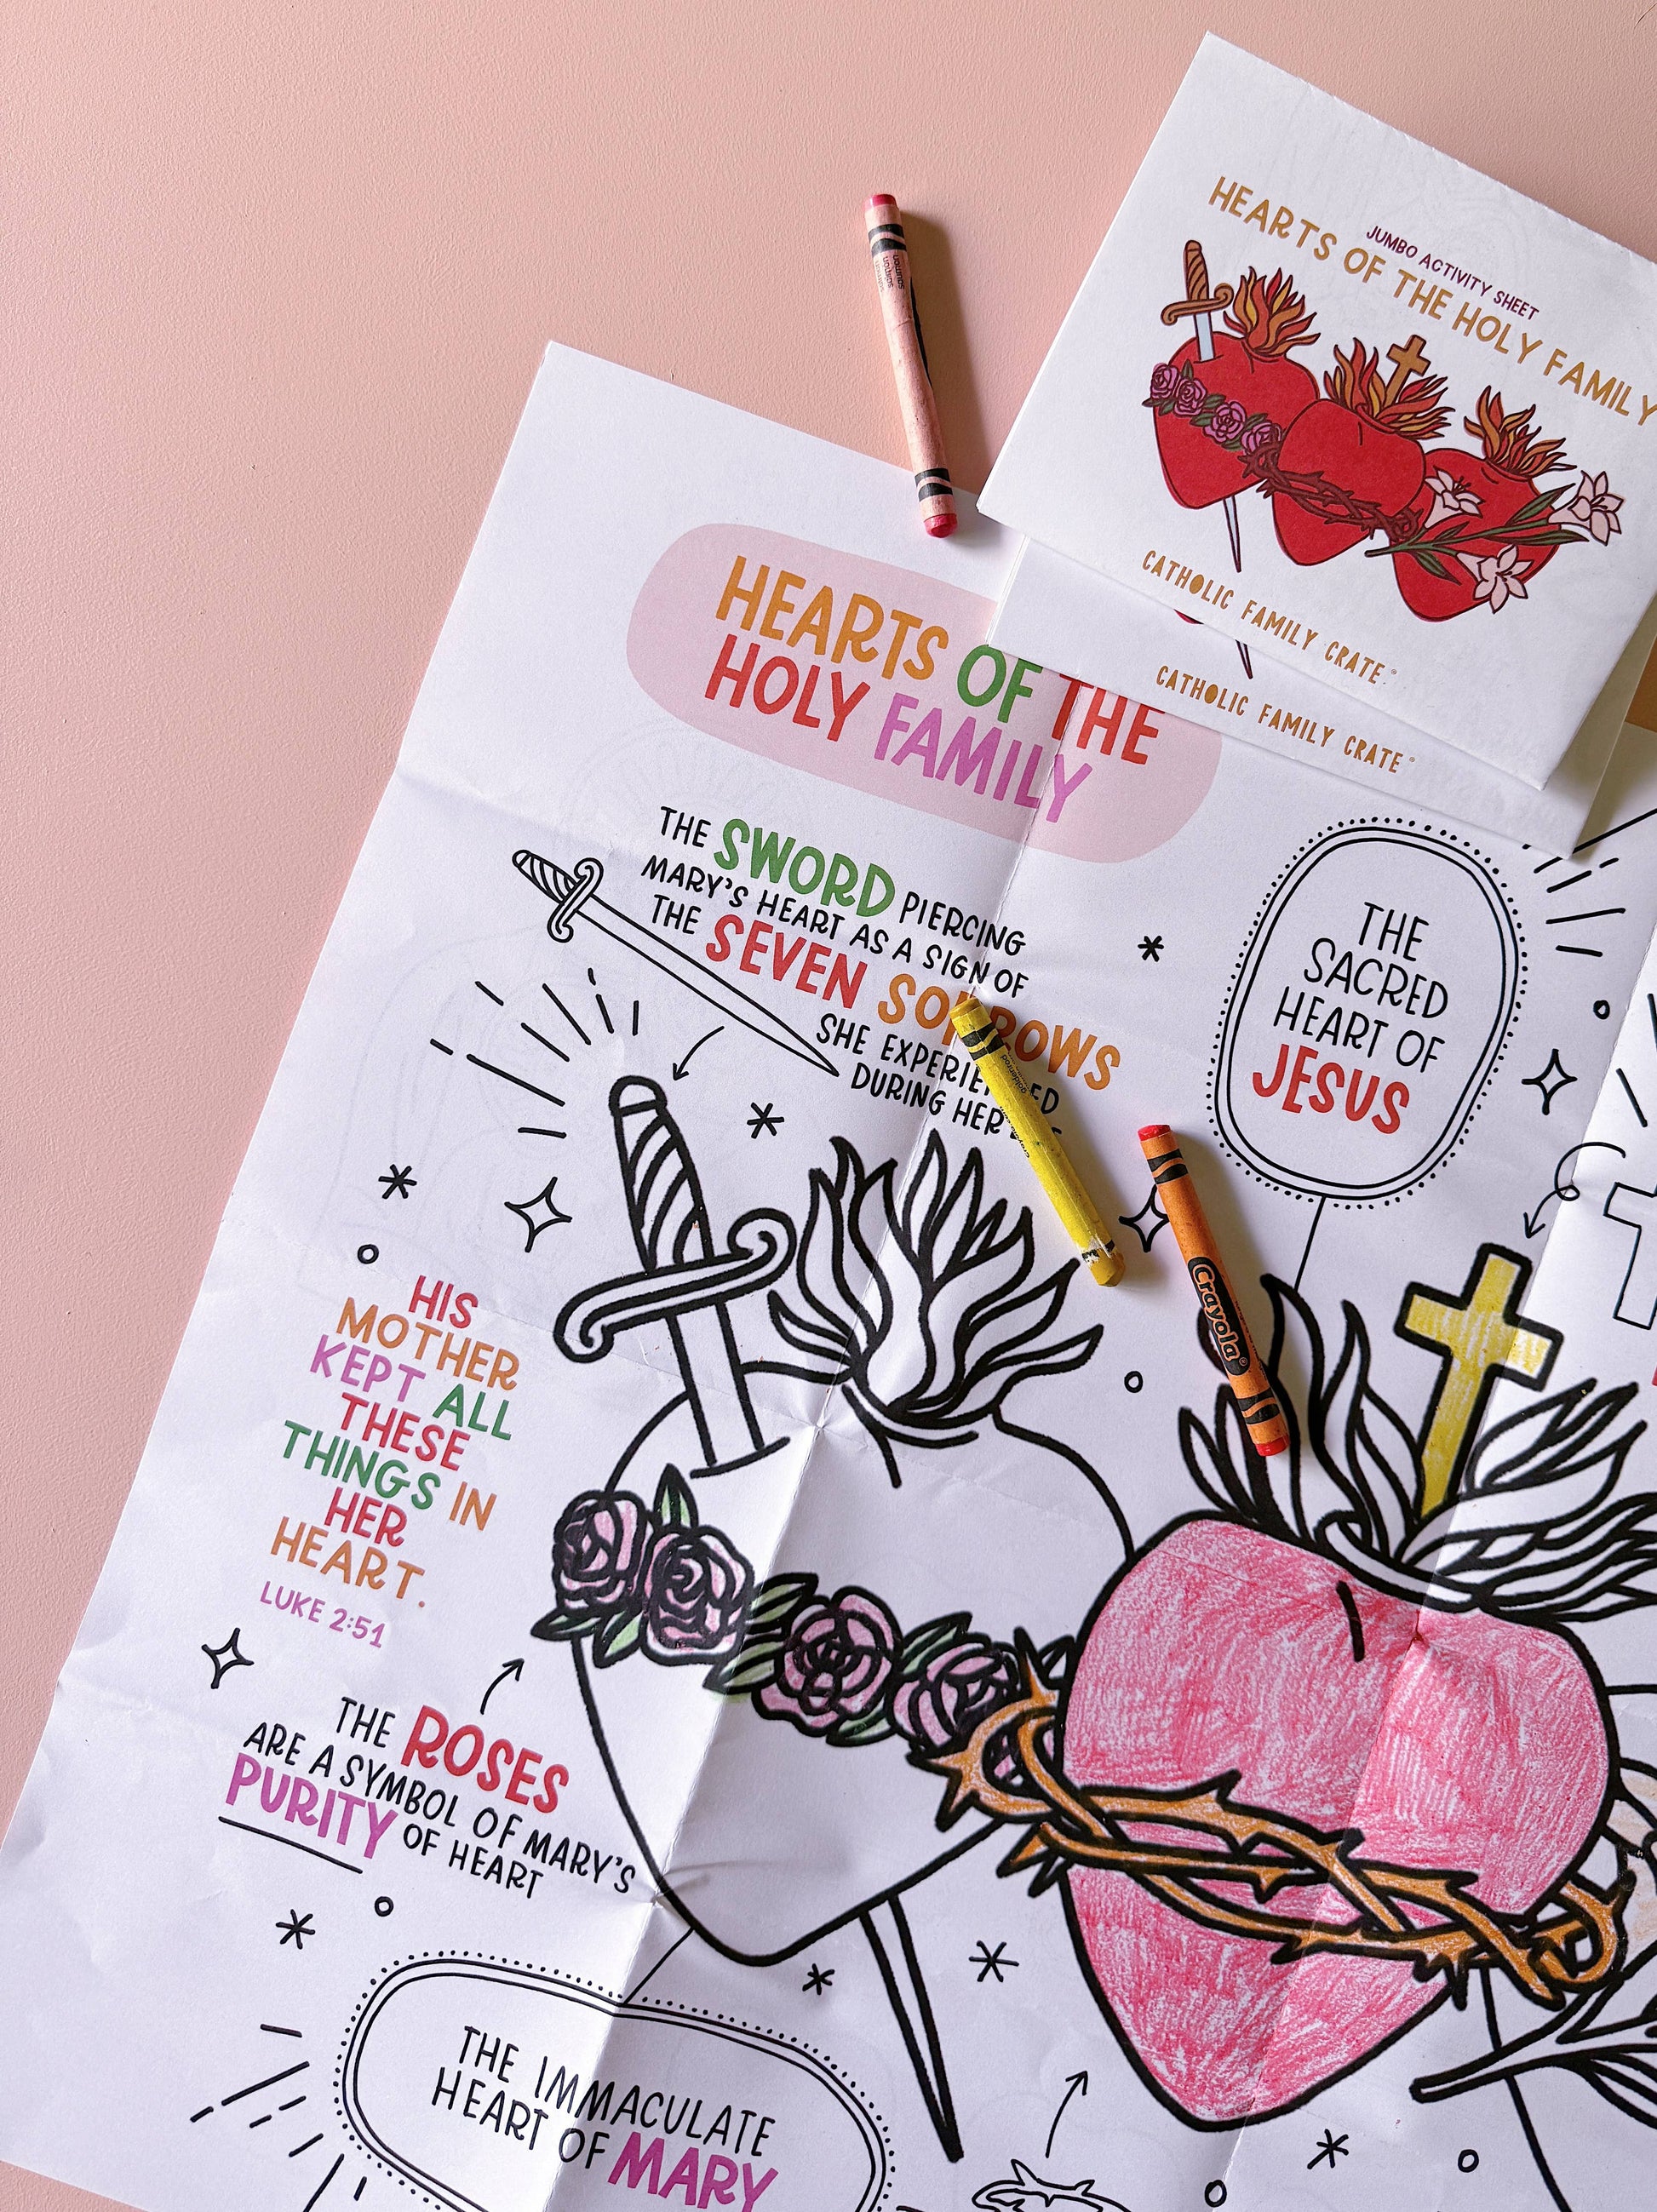 JUMBO ACTIVITY SHEET
HEARTS OF THE HOLY FAMILY
CATHOLIC FAMILY CRATE®
CATHOLIC FAMILY CRATE®
HEARTS OF THE
HOLY FAMILY
THE SWORD PIERCING
MARY'S HEART AS A SIGN OF
THE SEVEN SORROWS
SHE EXPERIENCED
DURING HER
THE
SACRED
HEART OF
JESUS
salmon
goldenrod
Crayola®
HIS
MOTHER
KEPT ALL
THESE
THINGS IN
HER
HEART.
LUKE 2:51
THE ROSES
ARE A SYMBOL OF MARY'S
PURITY OF HEART
THE IMMACULATE
HEART OF MARY